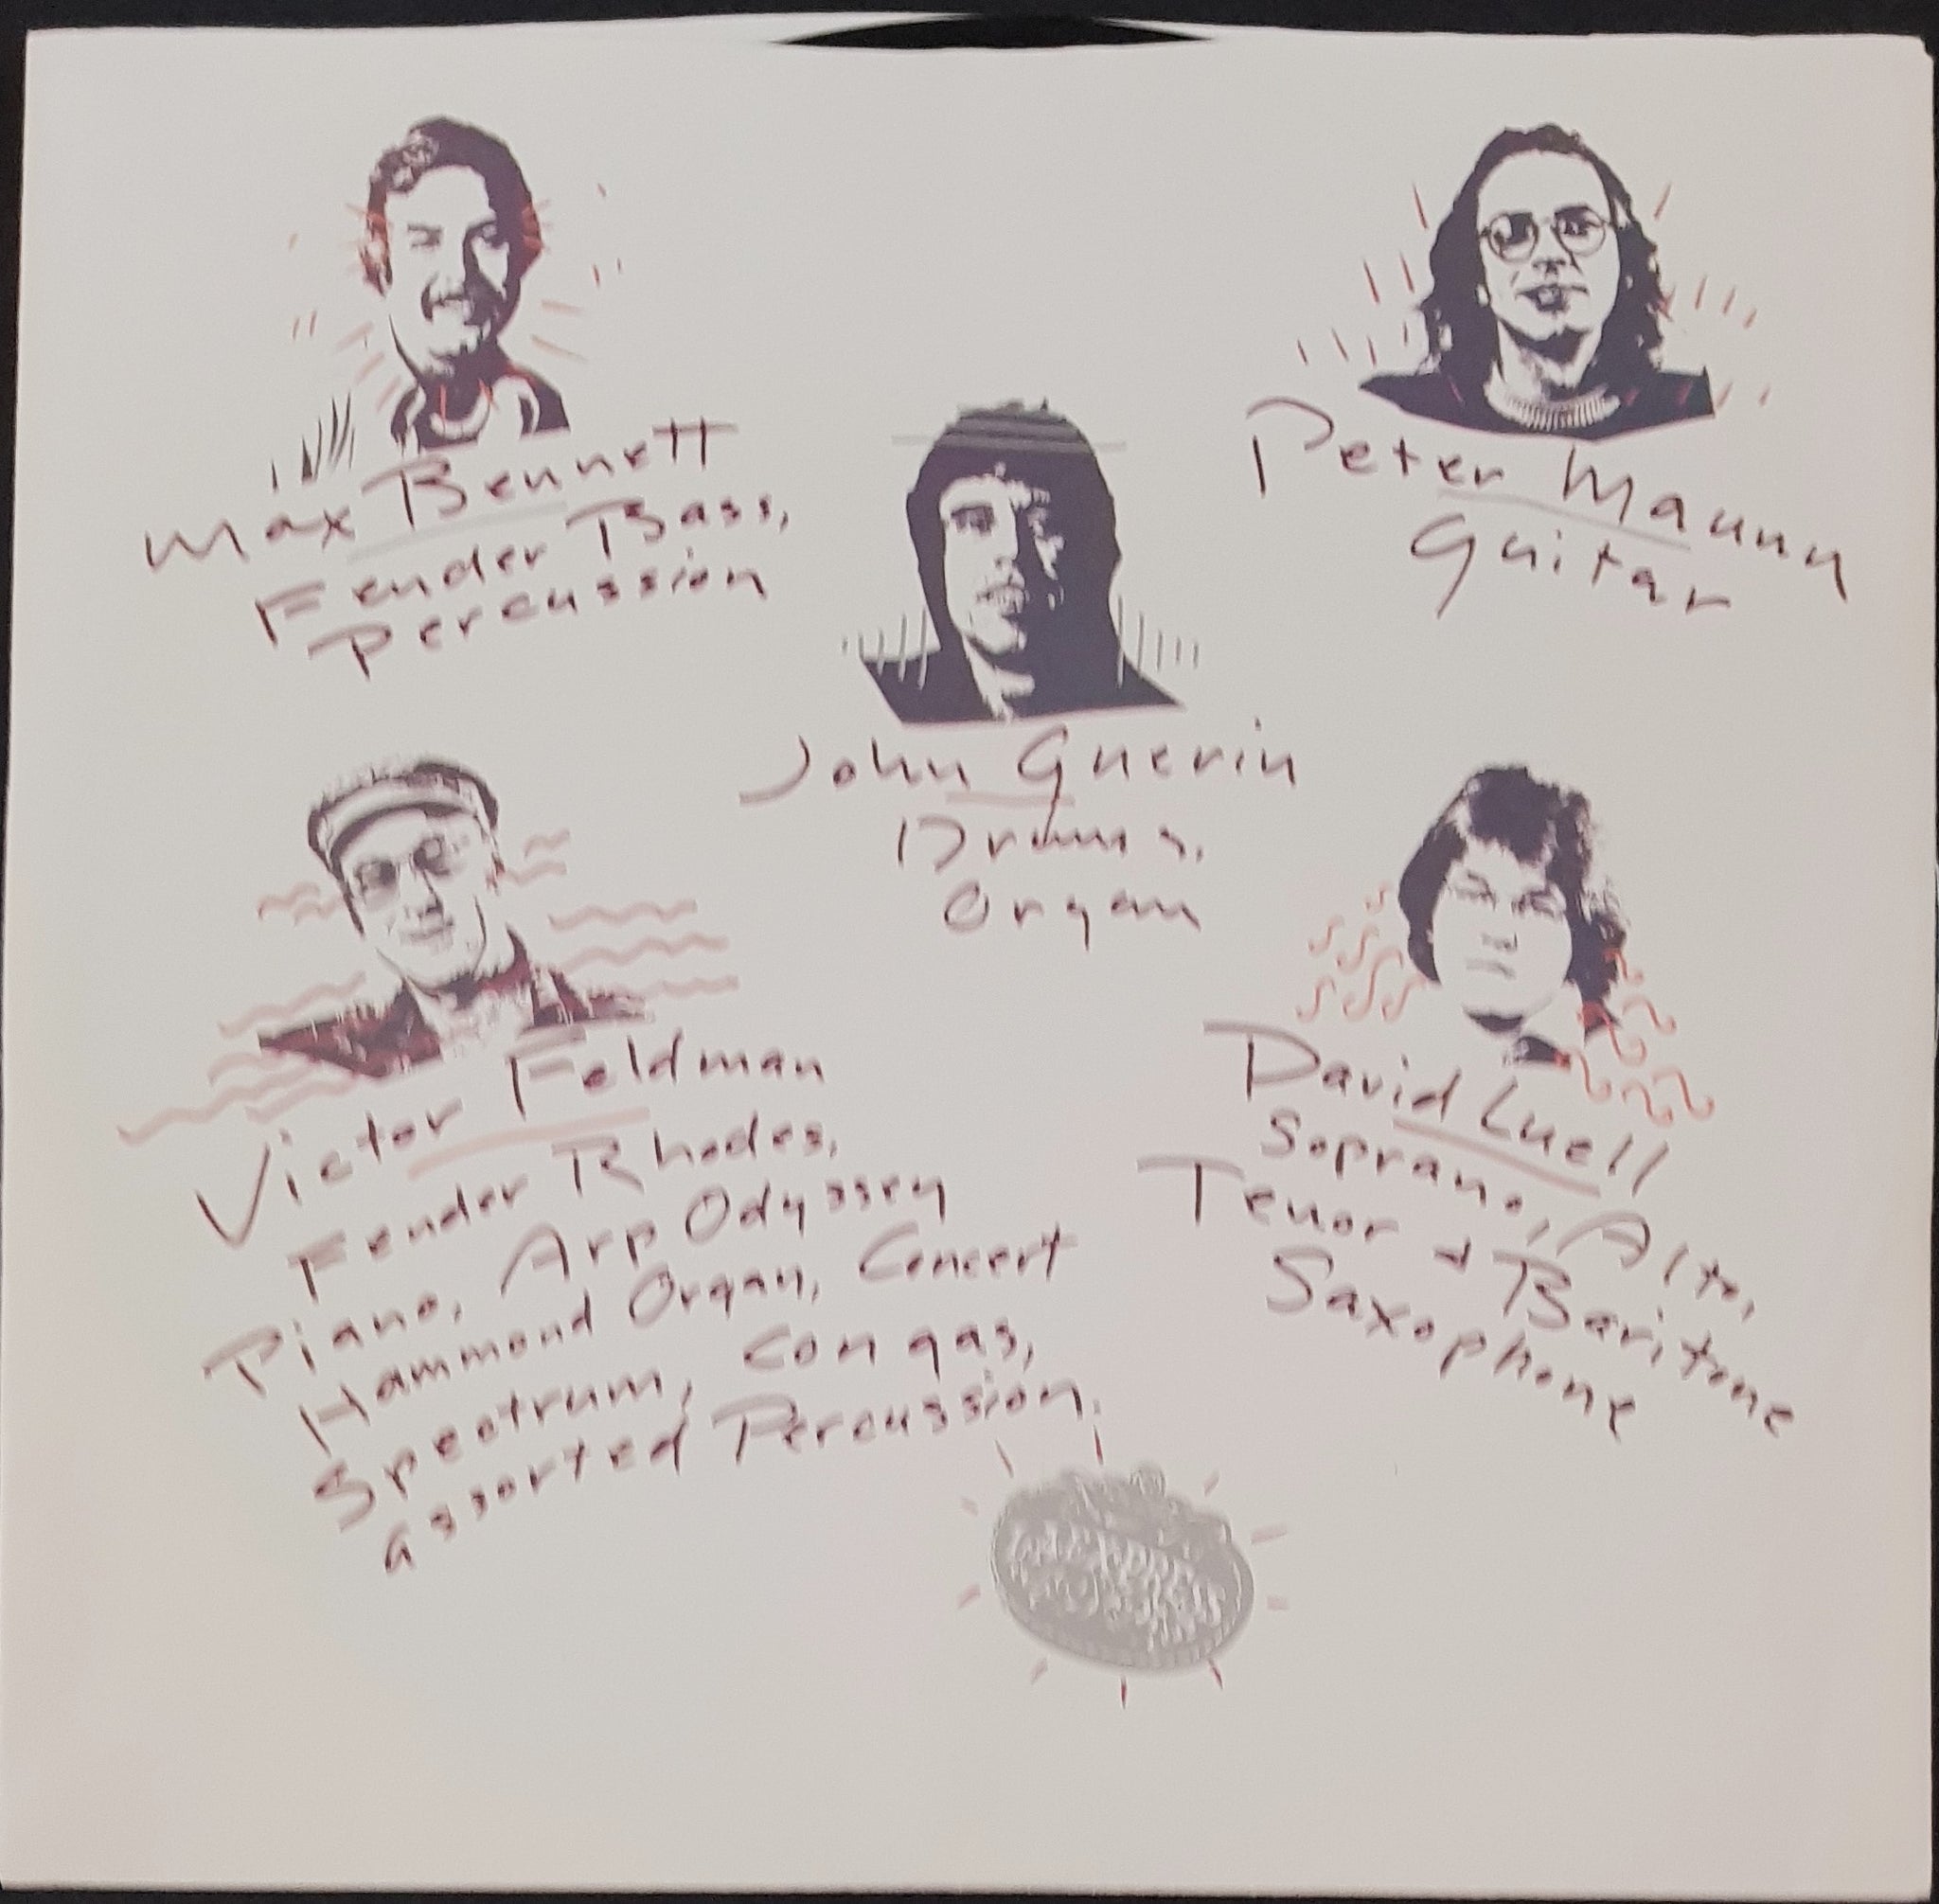 Max Bennett
Fender Bass,
Percussion
Peter Maunu
Guitar
John Guerin
Drums,
Organ
Victor Feldman
Fender Rhodes,
Piano, Arp Odyssey
Hammond Organ, Concert
Spectrum, Congas,
assorted Percussion.
David Luell
Soprano, Alto,
Tenor + Baritone
Saxophone